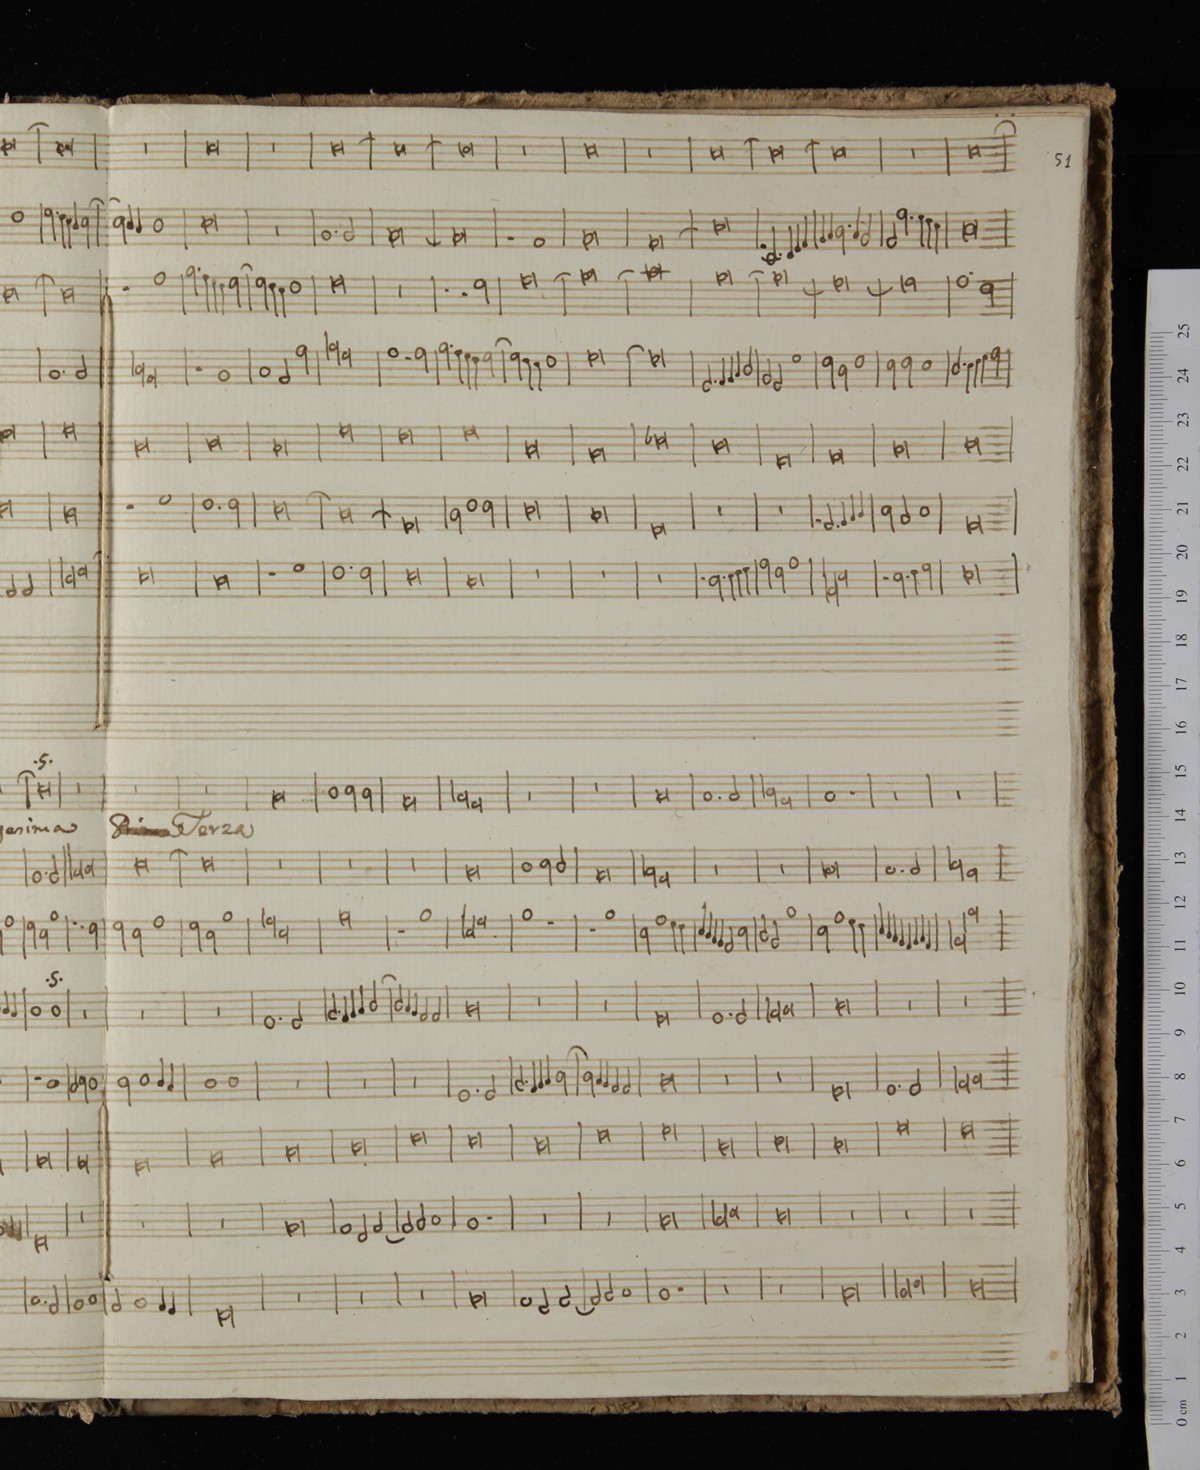 51
.5.
Terza
.5.
25
24
23
22
21
20
19
18
17
16
15
14
13
12
11
10
9
8
7
6
5
4
3
2
1
0 cm